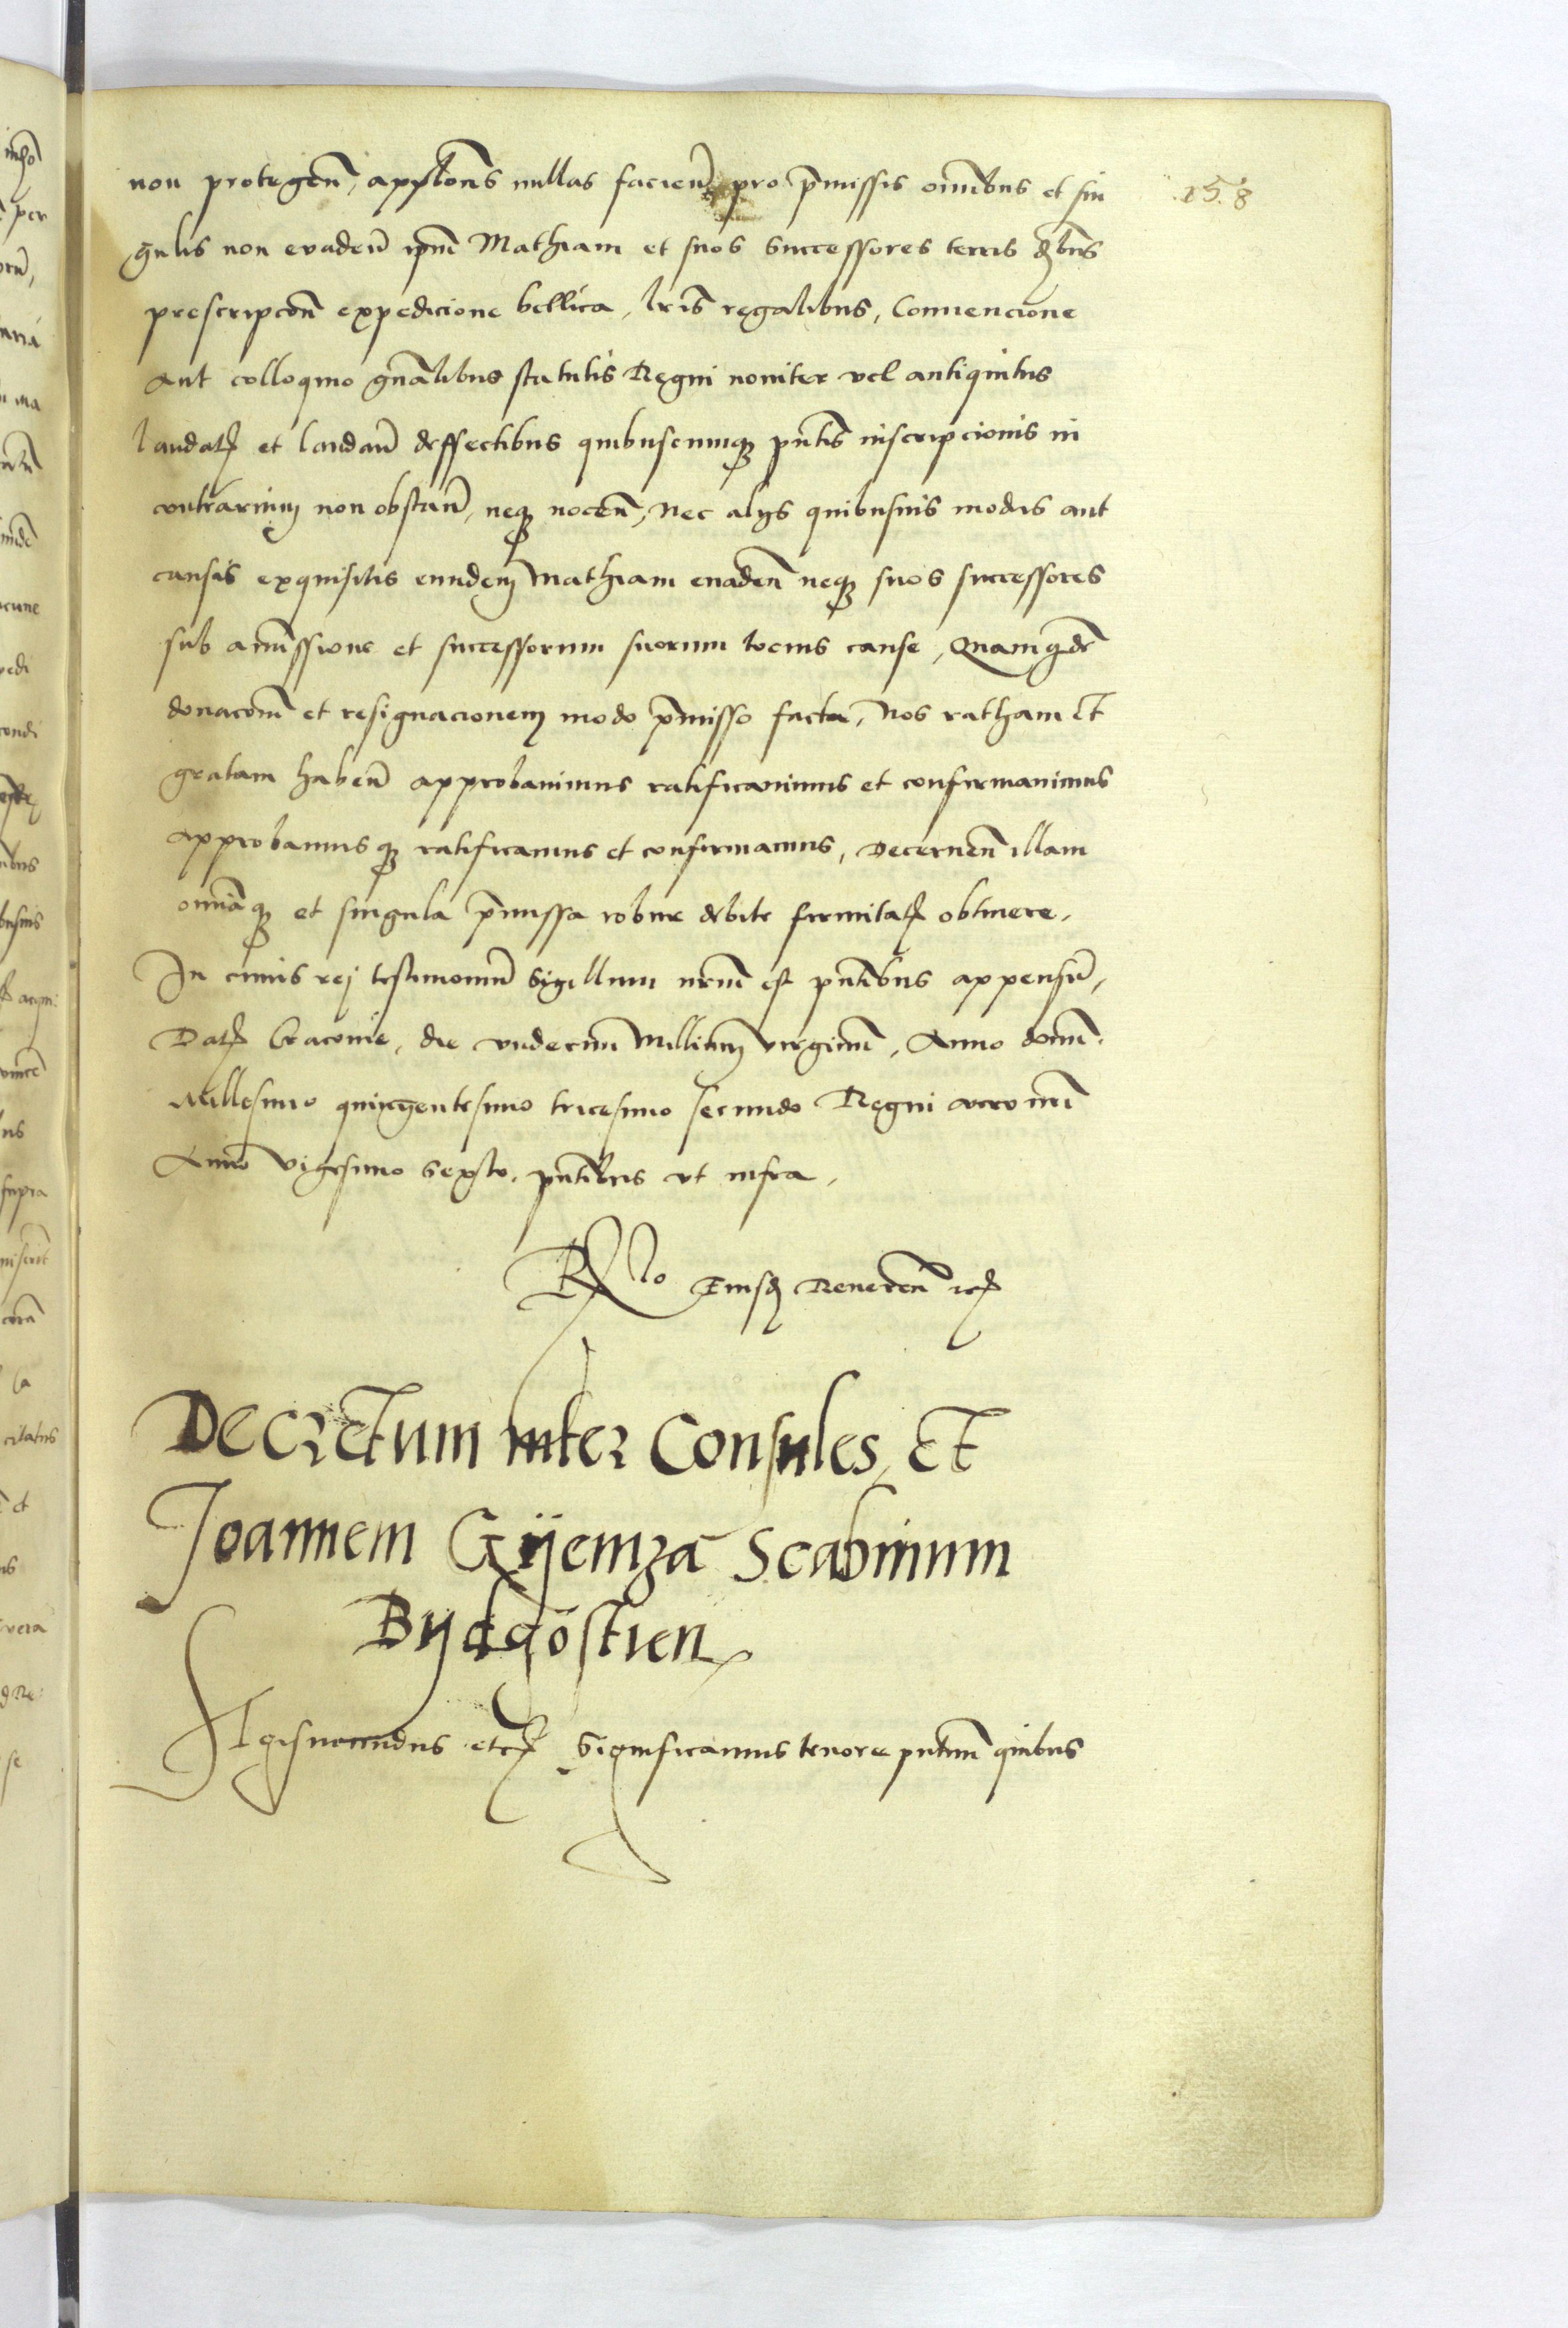 158
non protegen̄, appłłoēs nullas facien̄ pro p̄missis om̄ibus et sin
gulis non evaden̄ ip̄m Mathiam et suos successores terris
prescripcōn̄ expedicione bellica, lr̄is regalibus, Convencione
aut colloquio gn̄alibus statutis Regni noviter vel antiquitus
laudat̄ et laudan̄ deffectibus quibuscumqꝫ pn̄tis inscripcionis in
contrarium non obstan̄, neqꝫ nocen̄, nec alijs quibusvis modis aut
causis exquisitis eundem Mathiam evaden̄ neqꝫ suos successores
sub amissione et successorum suorum tocius cause, Quam qd̄
donacōm̄ et resignacionem modo p̄misso factā, Nos ratham Et
gratam haben̄ approbavimus ratificavimus et confirmavimus
approbamusqꝫ ratificamus et confirmamus, Decernen̄ illam
om̄iaqꝫ et singula p̄missa robur debite firmitat̄ obtinere.
In cuius rej testimoniū Sigillum nr̄m est pn̄tibus appensū,
Dat̄ Cracovie, die undecim Millium virginū, Anno domī.
Millesimo quingentesimo tricesimo secundo Regni vero nr̄i
Anno vigesimo Sexto. pn̄tibus ut infra,
R̄lo Eiusd̄ Reveren̄ etc̄
Decretum inter Consules Et
Joannem Gyemza Scabinum
Bydgostien
Sigismundus etc̄ Significamus tenore pn̄tium quibus